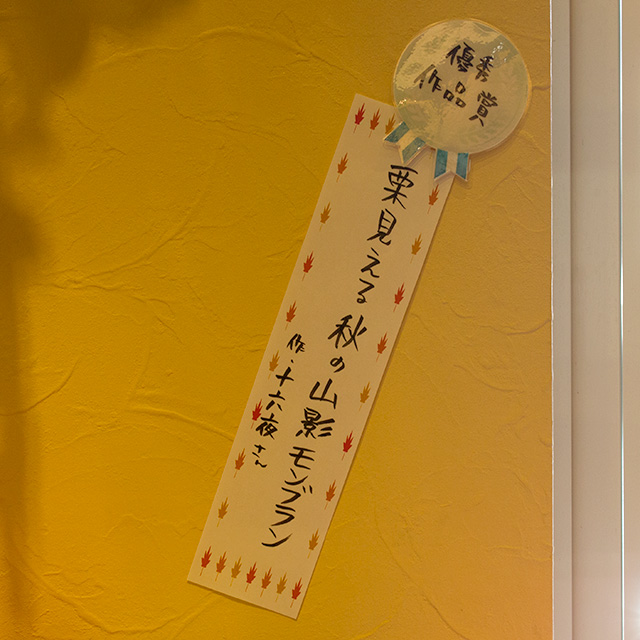 優秀
作品賞
栗見える秋の山影モンブラン
作・十六夜さん